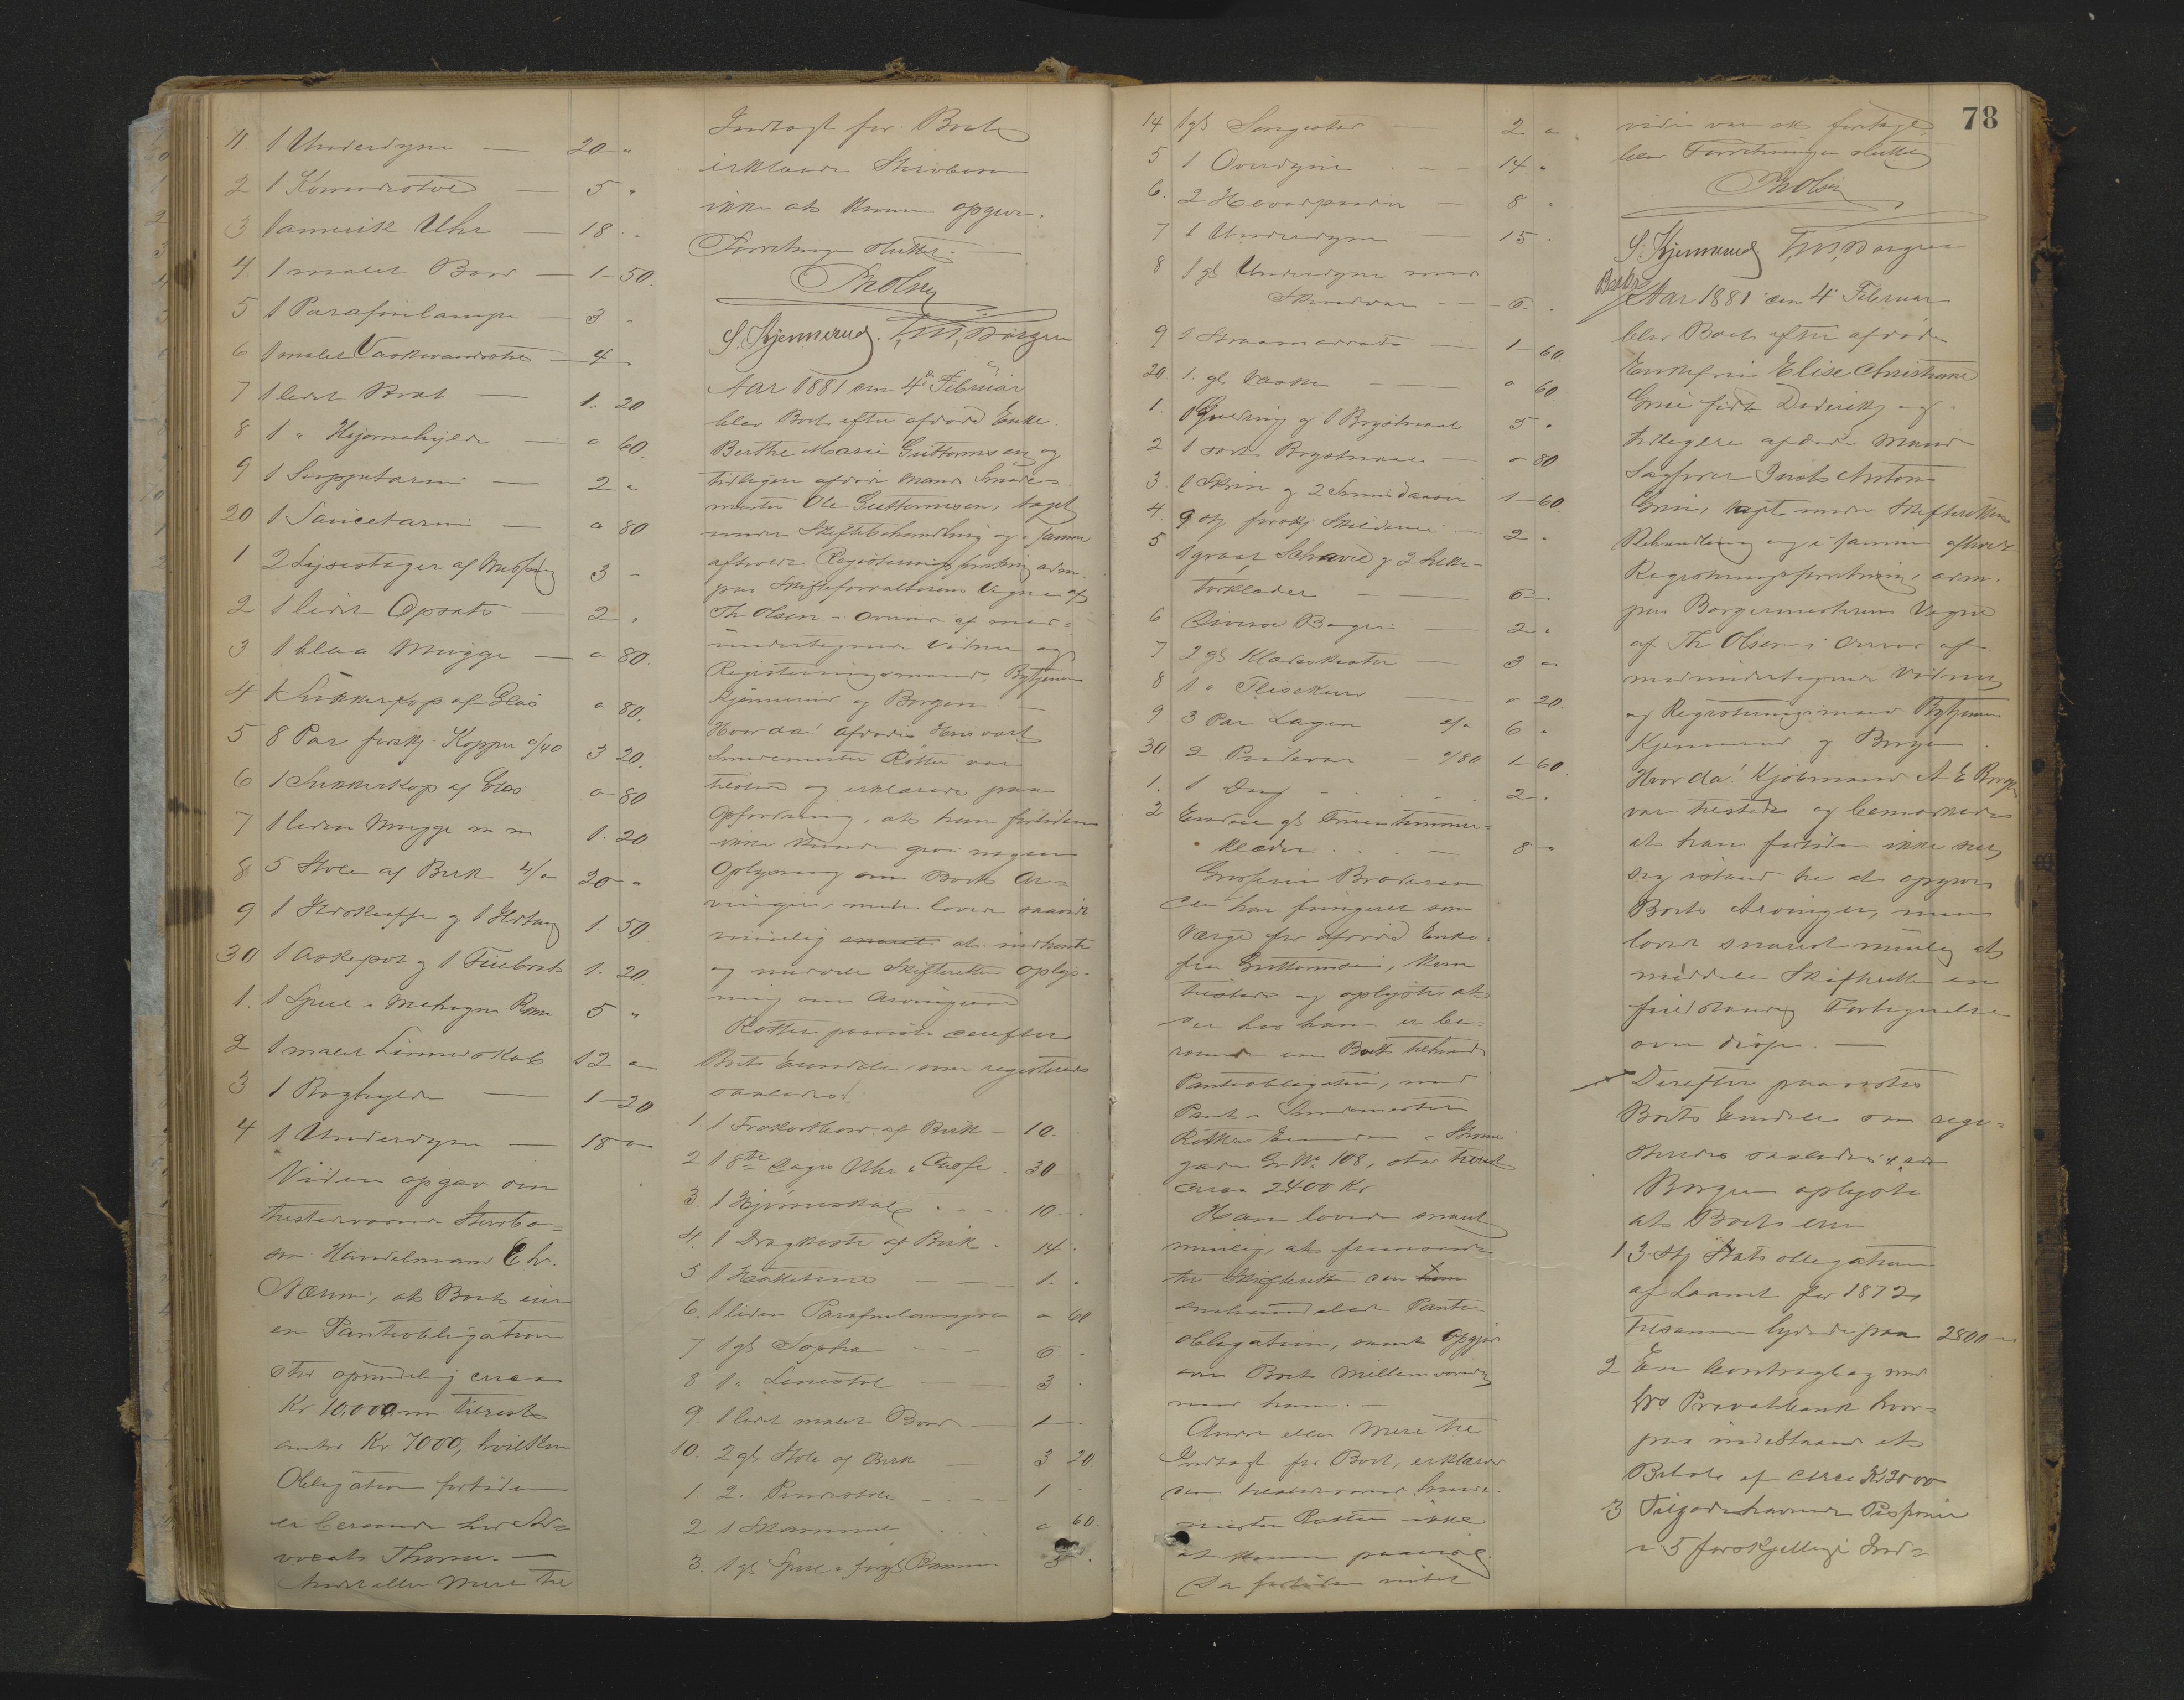 11. 1 Underdyne — 20 "
2 1 Komodestol — 5 "
3 1 amerik. Uhr — 18 "
4. 1 malet Bord — 1 - 50.
5 1 Parafinlampe — 3 "
6 1 malet Vaskevandstol — 4
7 1 lidet Bræt — 1. 20
8 1 " Hjørnehylde — " 60.
9 1 Suppetarin — 2 "
20 1 Saucetarin — " 80
1 2 Lysestager af Messing 3 -
2 1 lidet Opsats — 2 "
3 1 blaa Mugge — " 80.
4 1 Sukkerkop af Glas " 80.
5 8 Par forskj. Kopper a/40 3 20.
6 1 Sukkerkop af Glas " 80
7 1 liden Mugge m m 1. 20
8 5 Stole af Birk 4/" 20 "
9 1 Ildskuffe og 1 Ildtang 1. 50
30 1 Askepot og 1 Fiirbræt 1. 20.
1. 1 Speil i Mahogni Ramme 5 "
2 1 malet Linnedskab 12 "
3 1 Boghylde — 1 - 20.
4 1 Underdyne — 18 "
Viden opgav den
tilstedeværende Stervbo=
er Handelsmand Chr.
Næser, at Boet eier
en Panteobligation
stor oprindelig circa
Kr 10,000, nu tilrest
Kr 7000, hvilken
Obligation fortiden
er beroende hos Ad=
vocat Thorne. —
Andet eller Mere til
Indtægt for Boet
erklærede
ikke at kunne opgive.
Forretningen sluttet. —
Th Olsen
S. Kjennerud. T. M. Borgen
Aar 1881 den 4de Februar
blev Boet efter afdøde Enke
Berthe Marie Guttormsen og
tidligere afdøde Mand Smede=
mester Ole Guttormsen, taget
under Skiftebehandling og i samme
afholdt Registreringsforretning adm.
paa Skifteforvalterens Vegne af
Th Olsen i Overvær af med=
undertegnede Vidner og
Registreringsmænd, Bytjener
Kjennerud og Borgen. —
Hvorda! Afdødes Husvært
Smedemester Røtter var
tilstede og erklærede paa
Opfordring, at han fortiden
ikke kunde give nogen
Oplysning om Boets Ar=
vinger, men lovede snarest
muelig at indhente
og meddele Skifteretten Oplys=
ning om Arvingerne
Røtter paaviste derefter
Boets Eiendele, som registreredes
saaledes:
1. 1 Frokostbord af Birk — 10.
2 1 8te Dages Uhr i Casse . 30
3. 1 Hjørneskab . . . 10 -
4. 1 Dragkiste af Birk . 14 .
5 — 1. "
6. 1 liden Parafinlampe " 60
7 1 gl Sopha — 6. "
8 1 " Lænestol — 3 .
9. 1 lidet malet Bord — 1 - .
10. 2 gl Stole af Birk — 3 20.
1. 2. Pindestole — 1
2 1 Skammel . . . " 60.
3. 1 gl Speil i forg. Ramme 5 .
78
14 1 gl Sengested — 2 "
5 1 Overdyne . - - 14 "
6. 2 Hovedpuder — 8 "
7 1 Underdyne — 15 .
8 1 gl Underdyne med
Skindvar — 6 .
9 1 Straamadrats — 1 - 60.
20 1. gl — " 60.
1. 1 Guldring og 1 Brystnaal 5 "
2 1 sort Brystnaal — " 80
3. 1 Skrin og 2 1 - 60.
4. 9 stk forskj Skilderier — 2 "
5 1 graat Schavl og 2 Silke=
tørklæder — 6 -
6 Diverse Bøger — 2 "
7 2 gl Klædeskister — 3 "
8 1 " Flisekurv " 20.
9 3 Par Lagen 2/" 6 "
30 2 Pudevar — "/80 1 - 60.
1. 1 Dug . . . 2 .
2 Endel gl Fruentimmer=
klæder . . — 8 "
Brodersen
der har fungeret som
Værge for afdøde Enke=
fru Guttormsen, kom
tilstede og oplyste at
der hos ham er be=
roende en Boet tilhørende
Panteobligation, med
Pant i Smedemester
Røtters Eiendom i Strøms=
gaden Gr No. 108, stor tilrest
circa 2400 Kr
Han lovede snarest
muelig, at fremsende
til Skifteretten den
omhandlede Pante=
obligation, samt Opgjør
over Boets Mellemværende
med ham. —
Andet eller Mere til
Indtægt for Boet, erklærede
den tilstedeværende Smede=
mester Røtter ikke
at kunne paavise.
Da fortiden intet
videre var at foretage
blev Forretningen sluttet
Th Olsen
S. Kjennerud T. M. Borgen
Aar 1881 den 4de Februar
blev Boet efter afdøde
Enkefru Elise Christiane
født og
tidligere afdøde Mand
Sagfører Jacob Anton
tagt under Skifterettens
Behandling og i samme afholdt
Registreringsforretning, adm.
paa Borgermesterens Vegne
af Th Olsen i Overvær af
medundertegnede Vidner
og Registreringsmænd Bytjener
Kjennerud og Borgen.
Hvorda! Kjøbmand A E Borgen
var tilstede og bemærkede
at han fortiden ikke saae
sig istand til at opgive
Boets Arvinger, men
lovede snarest muelig at
meddele Skifteretten en
fuldstændig Fortegnelse
over disse. —
Derefter paavistes
Boets Eiendele som regi=
streredes saaledes:
Borgen oplyste
at Boet eier
1 3 Stk Statsobligationer
af Laanet for 1872,
tilsammen lydende paa 2800 -
2 En Contrabog med
Privatbank hvor=
paa indestaaende et
Beløb af circa Kr 3000
3 Tilgodehavende Pension
i 5 forskjellige Ind=